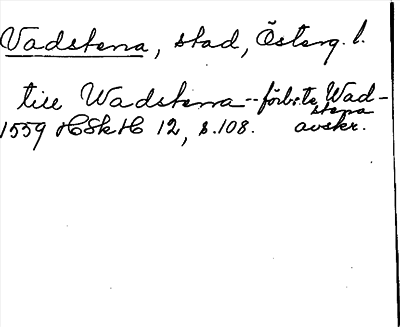 Vadstena, stad, Österg. l.
till Wadstena -- förb. te Wad-
stena
1559 HSkH 12, s. 108. avskr.